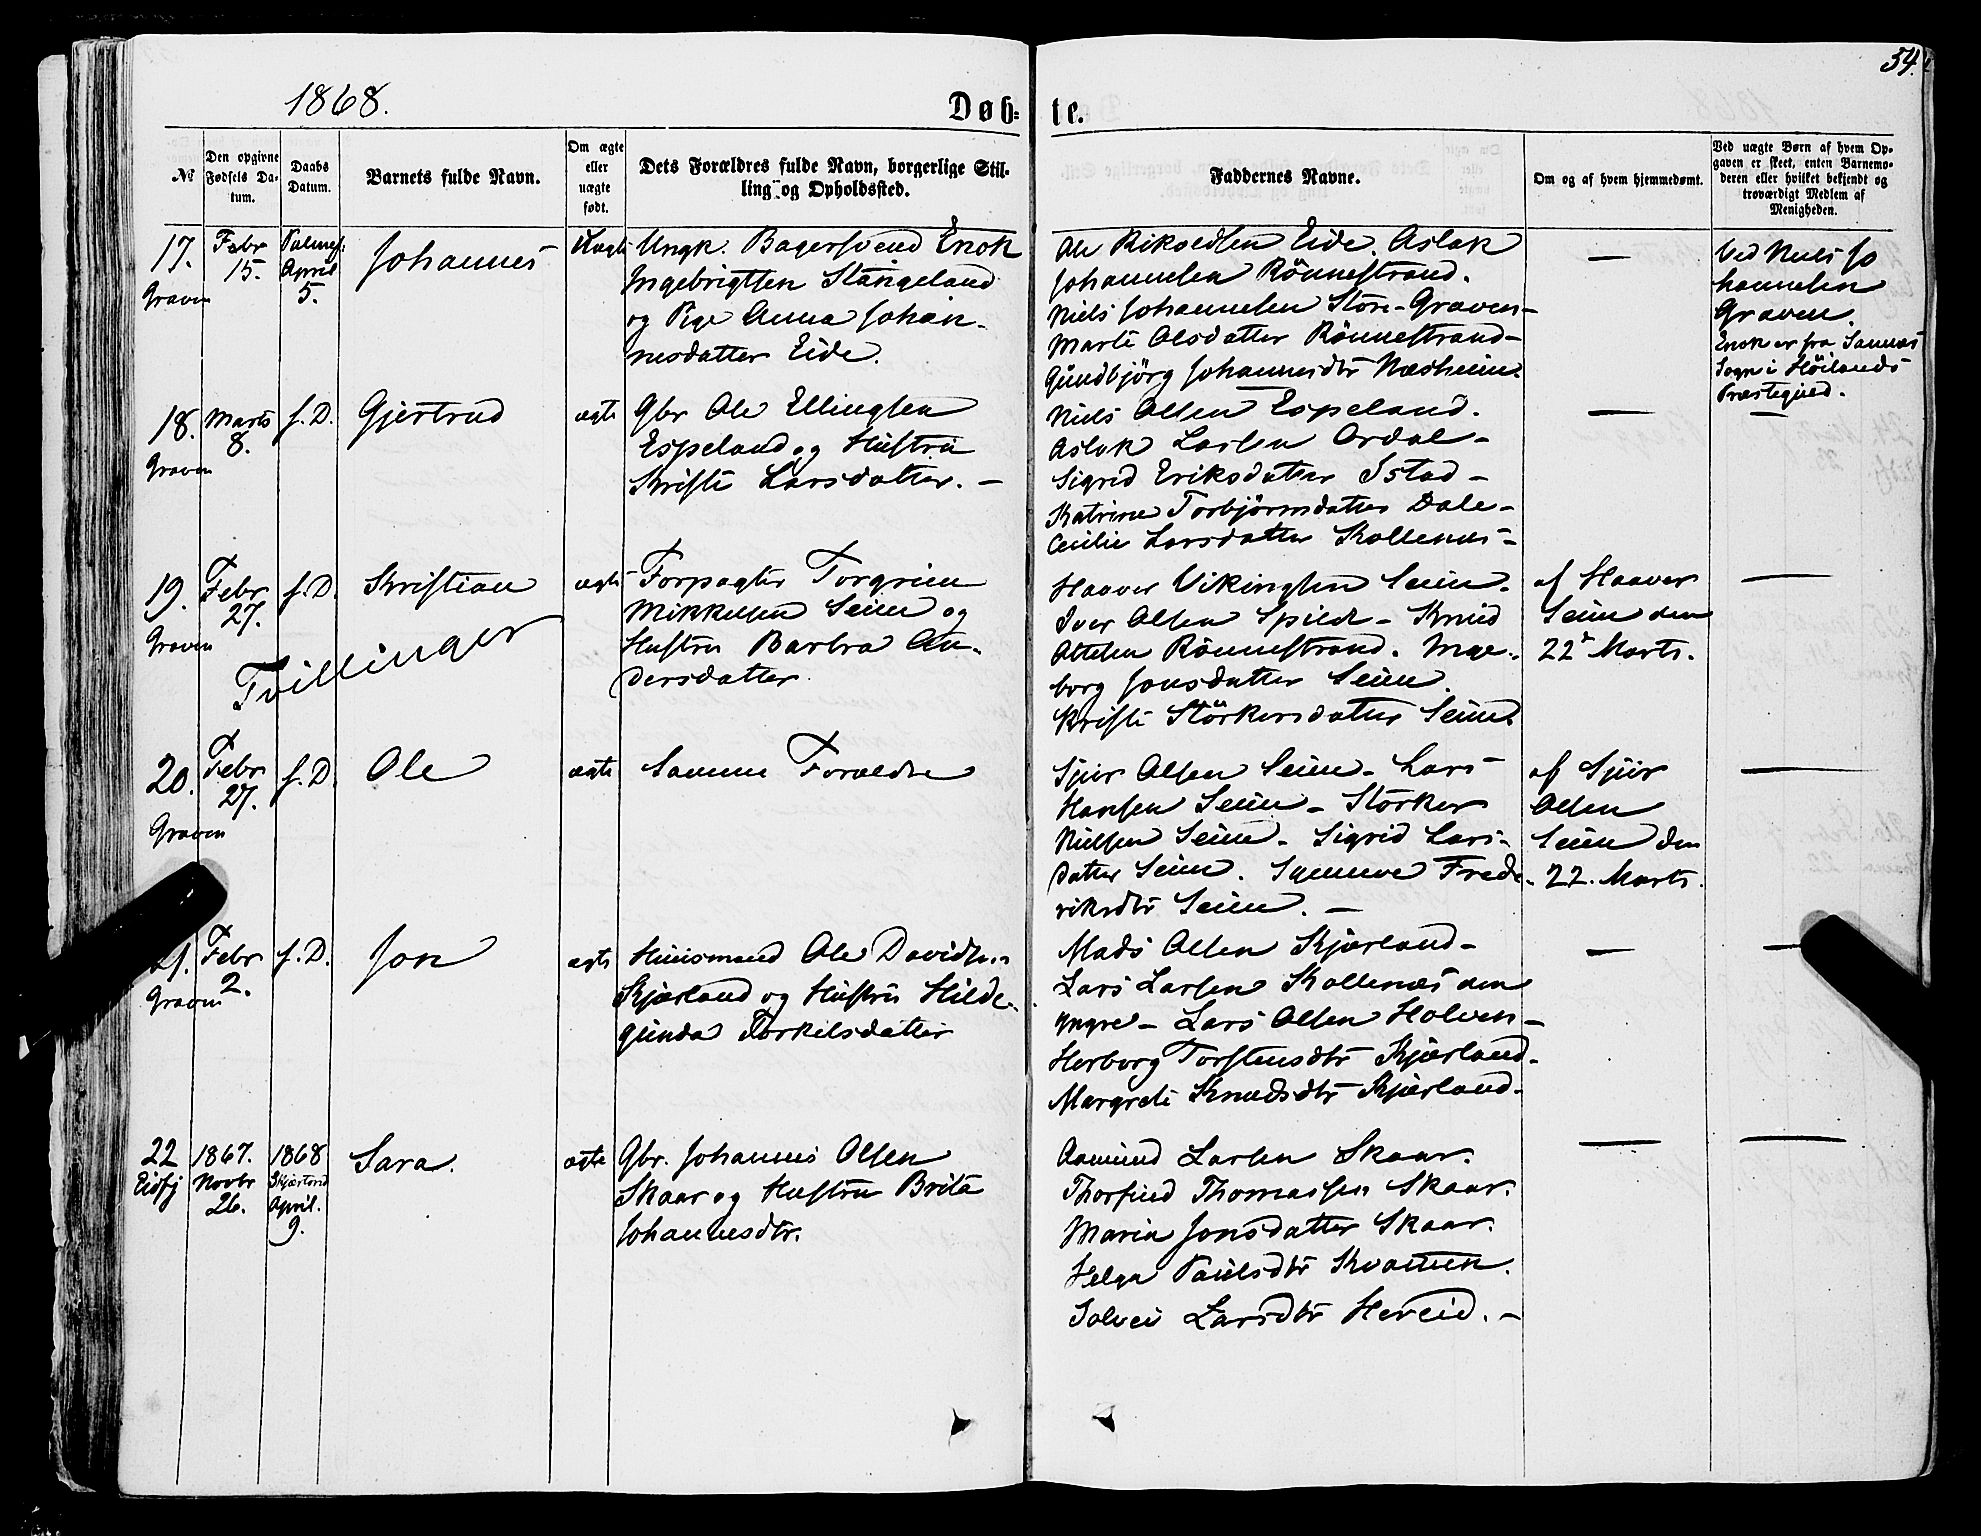 54.
1868.
Døb-
te.
№
Den opgivne Fødsels Da-
tum.
Daabs
Datum.
Barnets fulde Navn.
Om ægte
eller
uægte
født.
Dets Forældres fulde Navn, borgerlige Stil-
ling og Opholdssted.
Faddernes Navne.
Om og af hvem hjemmedøbt.
Ved uægte Børn af hvem Op-
gaven er skeet, enten Barnemo-
deren eller hvilket bekjendt og
troværdigt Medlem af
Menigheden.
17.
Graven
Febr
15.
Palmes.
April
5.
Johannes
Uægte
Ungk. Bagersvend Enok
Ingebrigtsen Stangeland
og Pige Anna Johan-
nesdatter Eide.
Ole Rikoldsen Eide. Aslak
Johannesen Rönnestrand.
Niels Johannesen Store-Graven-
Marte Olsdatter Rönnestrand-
Gundbjörg Johannesdtr Næsheim.
—
Ved Niels Jo
hannesen
Graven.
Enok er fra Sannæs
Sogn i Höilands
Præstegjeld.
18.
Graven
Marts
8.
s. D.
Gjertrud
ægte
Gbr Ole Ellingsen
Espeland og Hustru
Kristi Larsdatter. —
Niels Olsen Espeland.
Aslak Larsen Ordal-
Sigrid Eriksdatter Istad-
Katrine Torbjörnsdatter Dale-
Cecilie Larsdatter Kollenæs-
—
—
19.
Graven
Febr
27.
s. D.
Kristian
ægte
Forpagter Torgrim
Mikkelsen Seim og
Hustru Barbra An-
dersdatter.
Haaver Vikingsen Seim.
Iver Olsen Spilde - Knud
Attesen Rönnestrand. Inge-
borg Jonsdatter Seim.
Kristi Störkersdatter Seim.
af Haaver
Seim den
22 Marts.
—
Tvillinger
20.
Graven
Febr
27.
s. D.
Ole
ægte
Samme Forældre
Sjur Olsen Seim - Lars
Hansen Seim - Störker
Nielsen Seim - Sigrid Lars-
datter Seim. Synneve Frede-
riksdtr Seim. —
af Sjur
Olsen
Seim den
22. Marts.
—
21.
Graven
Febr
2.
s. D.
Jon
ægte
Huusmand Ole Davidsen
Kjærland og Hustru Hilde-
gunda Torkelsdatter
Mads Olsen Kjærland-
Lars Larsen Kollenæs den
yngre - Lars Olsen Holven-
Herborg Torstensdtr Kjærland-
Margrete Knudsdtr Kjærland-
—
—
22
Eidfj
1867.
Novbr
26.
1868
Skjærtorsd
April.
9.
Sara.
ægte
Gbr. Johannes Olsen
Skaar og Hustru Brita
Johannesdtr.
Aamund Larsen Skaar.
Thorfind Thomassen Skaar.
Maria Jonsdatter Skaar.
Helga Paulsdtr Kvamen.
Solvei Larsdtr Hereid. —
—
—